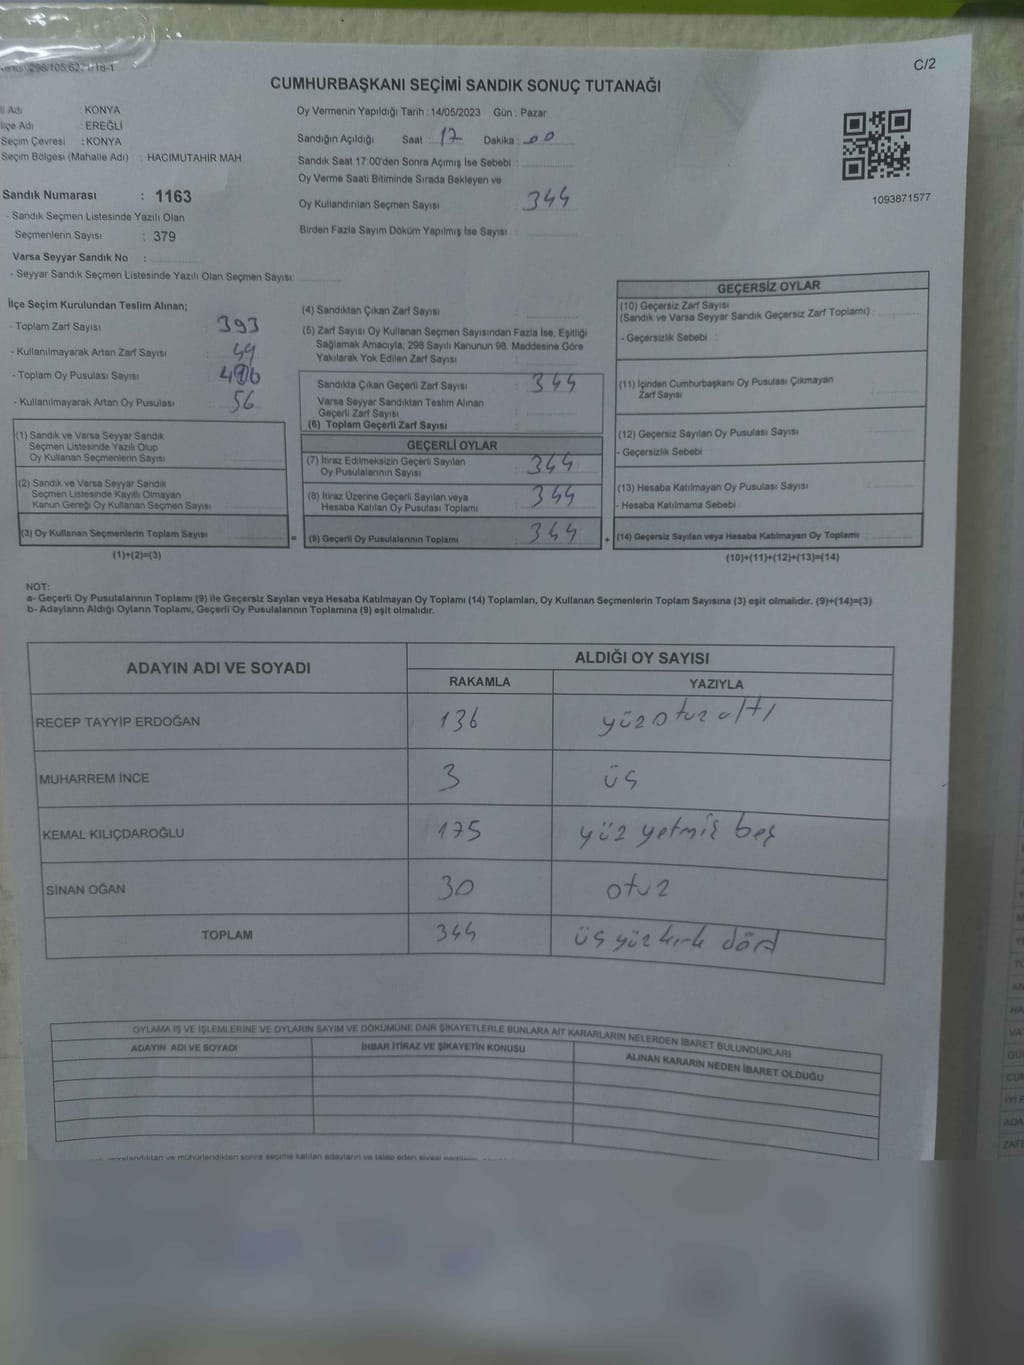 C/2
CUMHURBAŞKANI SEÇİMİ SANDIK SONUÇ TUTANAĞI
İl Adı : KONYA
İlçe Adı : EREĞLİ
Seçim Çevresi : KONYA
Seçim Bölgesi (Mahalle Adı) : HACIMUTAHİR MAH.
Sandık Numarası : 1163
- Sandık Seçmen Listesinde Yazılı Olan
Seçmenlerin Sayısı : 379
Varsa Seyyar Sandık No :
- Seyyar Sandık Seçmen Listesinde Yazılı Olan Seçmen Sayısı:
Oy Vermenin Yapıldığı Tarih : 14/05/2023 Gün : Pazar
Sandığın Açıldığı Saat : 17 Dakika : 00
Sandık Saat 17:00'den Sonra Açımış İse Sebebi :
Oy Verme Saati Bitiminde Sırada Bekleyen ve
Oy Kullandırılan Seçmen Sayısı 344
Birden Fazla Sayım Döküm Yapılmış İse Sayısı :
1093871577
İlçe Seçim Kurulundan Teslim Alınan;
- Toplam Zarf Sayısı : 393
- Kullanılmayarak Artan Zarf Sayısı : 49
- Toplam Oy Pusulası Sayısı :
- Kullanılmayarak Artan Oy Pusulası : 56
(1) Sandık ve Varsa Seyyar Sandık
Seçmen Listesinde Yazılı Olup
Oy Kullanan Seçmenlerin Sayısı
(2) Sandık ve Varsa Seyyar Sandık
Seçmen Listesinde Kayıtlı Olmayan
Kanun Gereği Oy Kullanan Seçmen Sayısı
(3) Oy Kullanan Seçmenlerin Toplam Sayısı
(1)+(2)=(3)
(4) Sandıktan Çıkan Zarf Sayısı :
(5) Zarf Sayısı Oy Kullanan Seçmen Sayısından Fazla İse, Eşitliği
Sağlamak Amacıyla; 298 Sayılı Kanunun 98. Maddesine Göre
Yakılarak Yok Edilen Zarf Sayısı :
Sandıkta Çıkan Geçerli Zarf Sayısı : 344
Varsa Seyyar Sandıktan Teslim Alınan
Geçerli Zarf Sayısı :
(6) Toplam Geçerli Zarf Sayısı :
GEÇERLİ OYLAR
(7) İtiraz Edilmeksizin Geçerli Sayılan
Oy Pusulalarının Sayısı : 344
(8) İtiraz Üzerine Geçerli Sayılan veya
Hesaba Katılan Oy Pusulası Toplamı : 344
(9) Geçerli Oy Pusulalarının Toplamı : 344
GEÇERSİZ OYLAR
(10) Geçersiz Zarf Sayısı
(Sandık ve Varsa Seyyar Sandık Geçersiz Zarf Toplamı) :
- Geçersizlik Sebebi :
(11) İçinden Cumhurbaşkanı Oy Pusulası Çıkmayan
Zarf Sayısı :
(12) Geçersiz Sayılan Oy Pusulası Sayısı :
- Geçersizlik Sebebi :
(13) Hesaba Katılmayan Oy Pusulası Sayısı :
- Hesaba Katılmama Sebebi :
+ (14) Geçersiz Sayılan veya Hesaba Katılmayan Oy Toplamı :
(10)+(11)+(12)+(13)=(14)
NOT:
a- Geçerli Oy Pusulalarının Toplamı (9) ile Geçersiz Sayılan veya Hesaba Katılmayan Oy Toplamı (14) Toplamları, Oy Kullanan Seçmenlerin Toplam Sayısına (3) eşit olmalıdır. (9)+(14)=(3)
b- Adayların Aldığı Oyların Toplamı, Geçerli Oy Pusulalarının Toplamına (9) eşit olmalıdır.
ADAYIN ADI VE SOYADI ALDIĞI OY SAYISI
RAKAMLA YAZIYLA
RECEP TAYYİP ERDOĞAN 136 yüz otuz altı
MUHARREM İNCE 3 üç
KEMAL KILIÇDAROĞLU 175 yüz yetmiş beş
SİNAN OĞAN 30 otuz
TOPLAM 344 üç yüz kırk dört
OYLAMA İŞ VE İŞLEMLERİNE VE OYLARIN SAYIM VE DÖKÜMÜNE DAİR ŞİKAYETLERLE BUNLARA AİT KARARLARIN NELERDEN İBARET BULUNDUKLARI
ADAYIN ADI VE SOYADI İHBAR İTİRAZ VE ŞİKAYETİN KONUSU ALINAN KARARIN NEDEN İBARET OLDUĞU